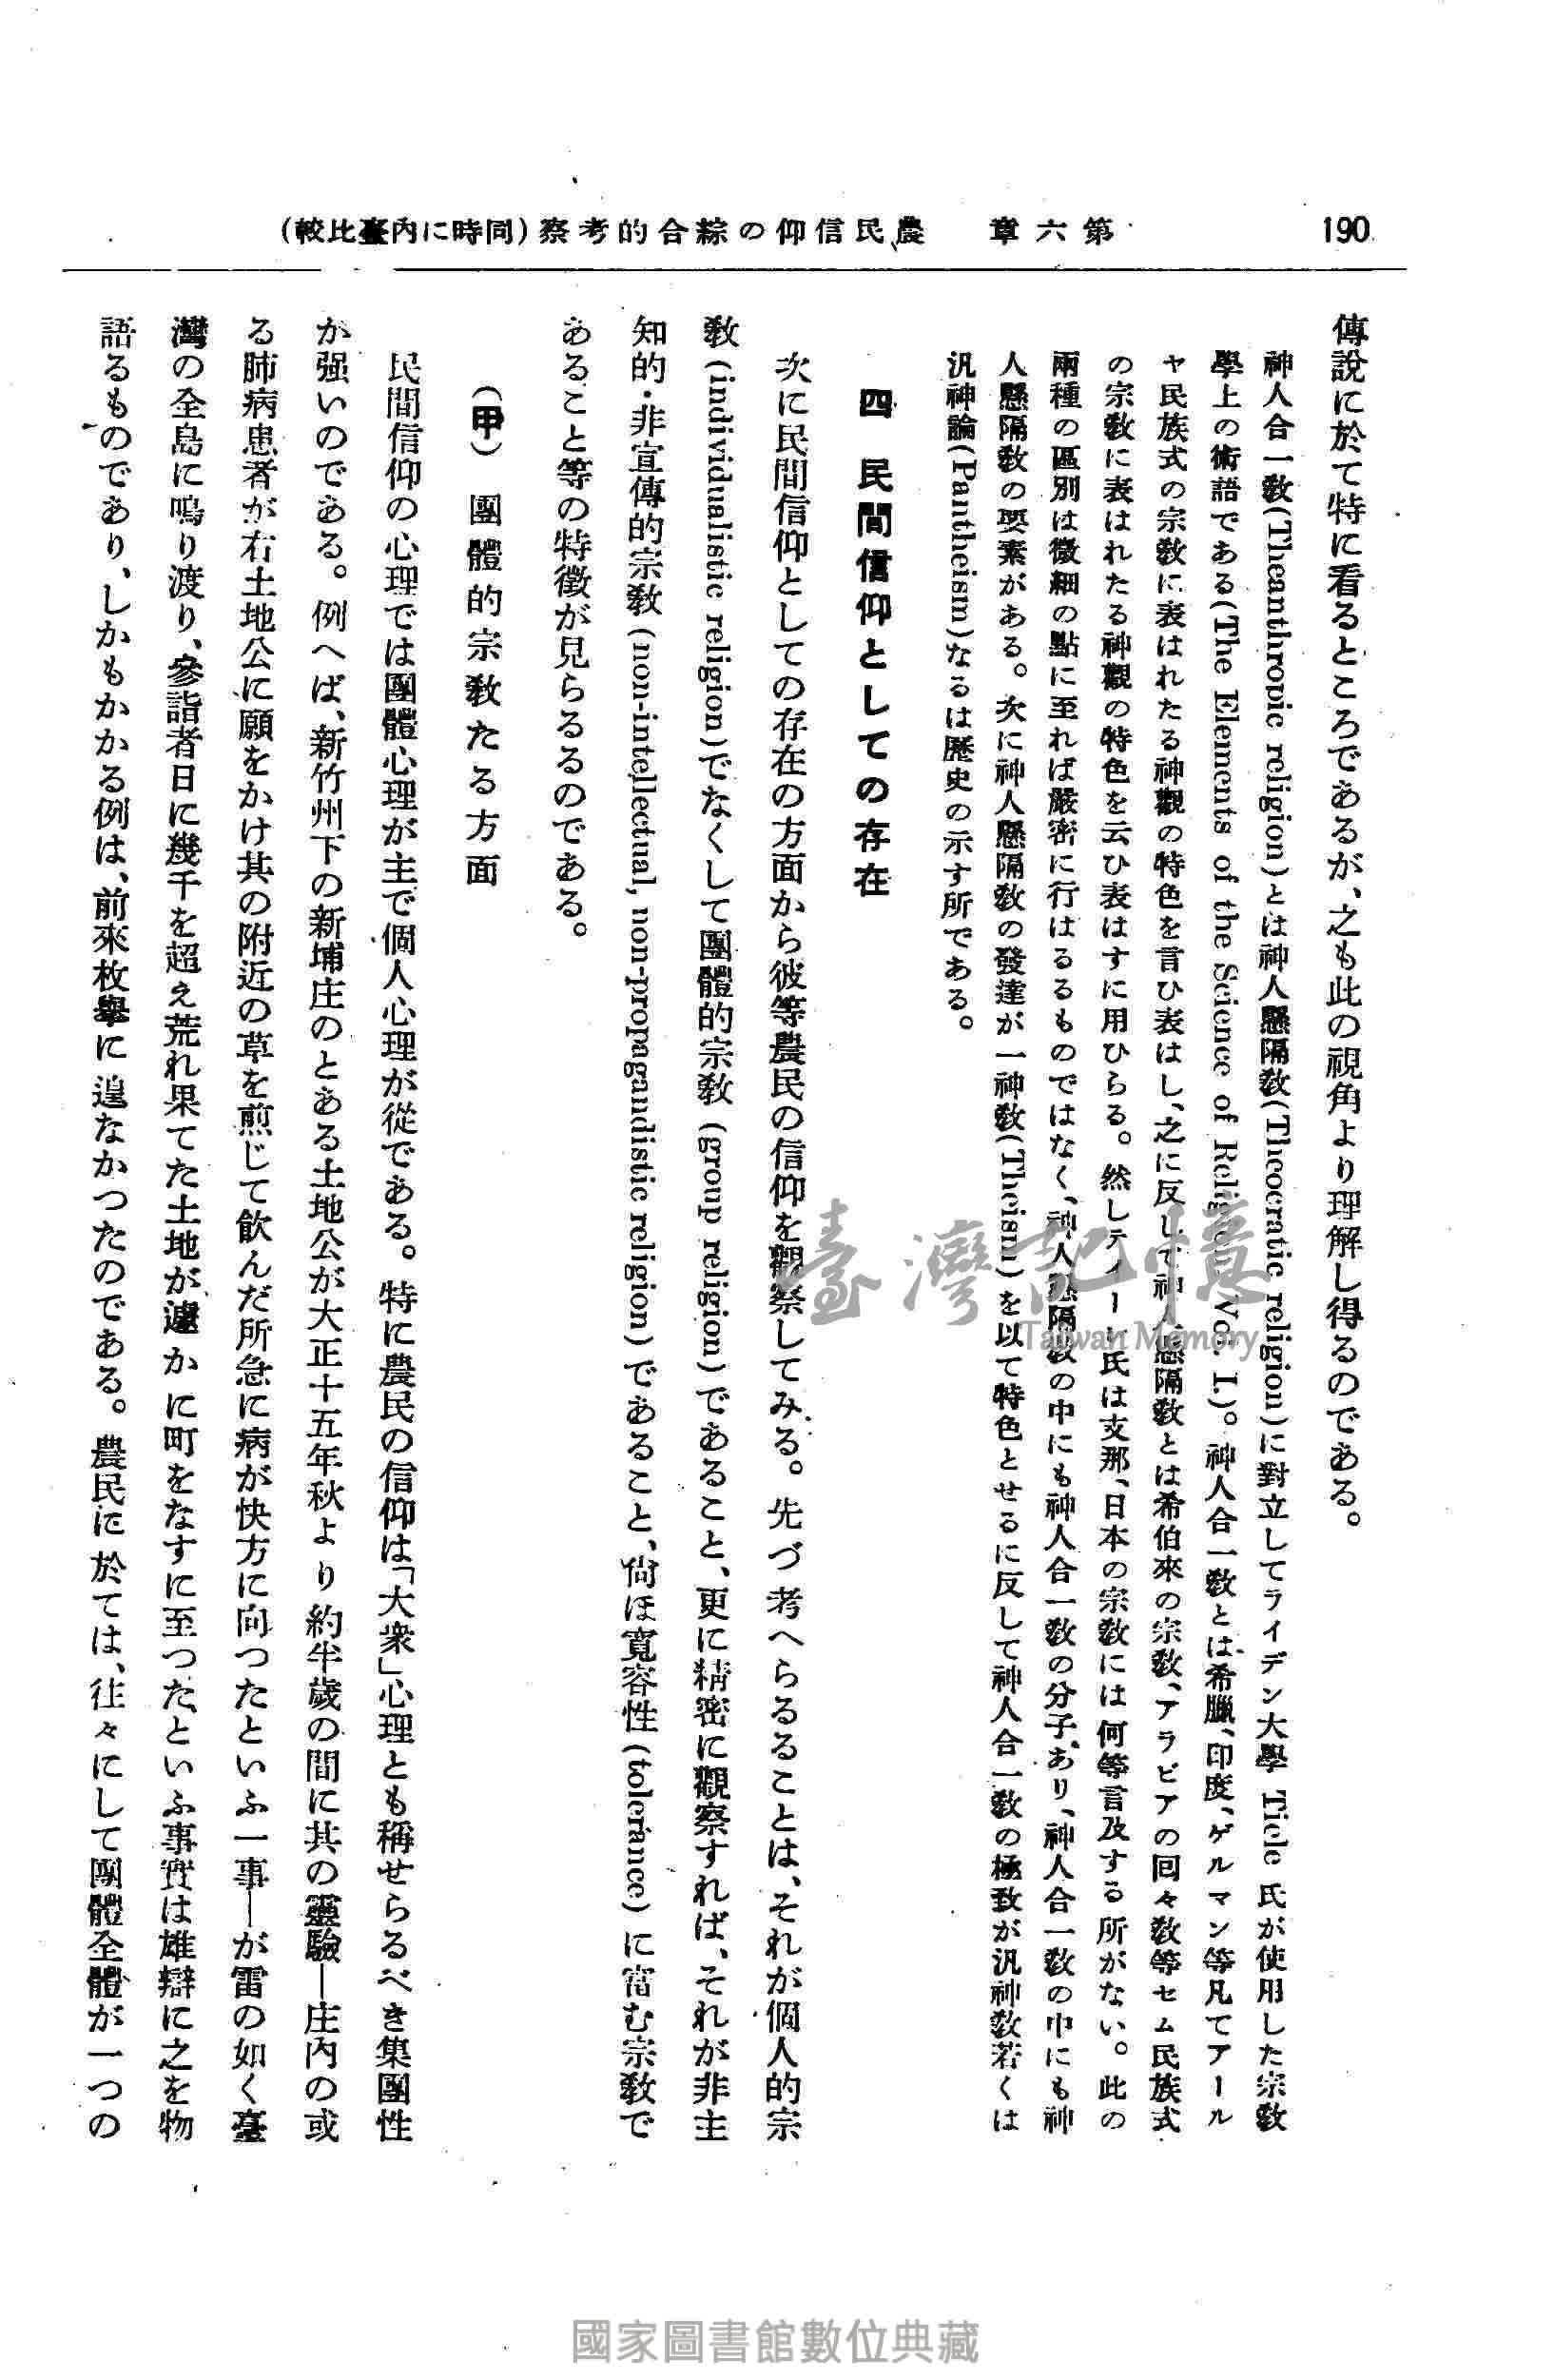 190
第六章　農民信仰の綜合的考察(同時に內臺比較)
傳說に於て特に看るところであるが、之も此の視角より理解し得るのである。
神人合一敎(Theanthropic religion)とは神人懸隔敎(Theocratic religion)に對立してライデン大學 Tiele 氏が使用した宗敎
學上の術語である(The Elements of the Science of Religion, Vol. I.)。神人合一敎とは希臘、印度、ゲルマン等凡てアール
ヤ民族式の宗敎に表はれたる神觀の特色を言ひ表はし、之に反して神人懸隔敎とは希伯來の宗敎、アラビアの回々敎等セム民族式
の宗敎に表はれたる神觀の特色を云ひ表はすに用ひらる。然しティーレ氏は支那、日本の宗敎には何等言及する所がない。此の
兩種の區別は微細の點に至れば嚴密に行はるるものではなく、神人懸隔敎の中にも神人合一敎の分子あり、神人合一敎の中にも神
人懸隔敎の要素がある。次に神人懸隔敎の發達が一神敎(Theism)を以て特色とせるに反して神人合一敎の極致が汎神敎若くは
汎神論(Pantheism)なるは歷史の示す所である。
四　民間信仰としての存在
次に民間信仰としての存在の方面から彼等農民の信仰を觀察してみる。先づ考へらるることは、それが個人的宗
敎(individualistic religion)でなくして團體的宗敎(group religion)であること、更に精密に觀察すれば、それが非主
知的・非宣傳的宗敎(non-intellectual, non-propagandistic religion)であること、尙ほ寬容性(tolerance)に富む宗敎で
あること等の特徵が見らるるのである。
(甲)　團體的宗敎たる方面
民間信仰の心理では團體心理が主で個人心理が從である。特に農民の信仰は「大衆」心理とも稱せらるべき集團性
が强いのである。例へば、新竹州下の新埔庄のとある土地公が大正十五年秋より約半歲の間に其の靈驗―庄內の或
る肺病患者が右土地公に願をかけ其の附近の草を煎じて飮んだ所急に病が快方に向つたといふ一事―が雷の如く臺
灣の全島に鳴り渡り、參詣者日に幾千を超え荒れ果てた土地が遽かに町をなすに至つたといふ事實は雄辯に之を物
語るものであり、しかもかかる例は、前來枚擧に遑なかつたのである。農民に於ては、往々にして團體全體が一つの
臺灣記憶
Taiwan Memory
國家圖書館數位典藏